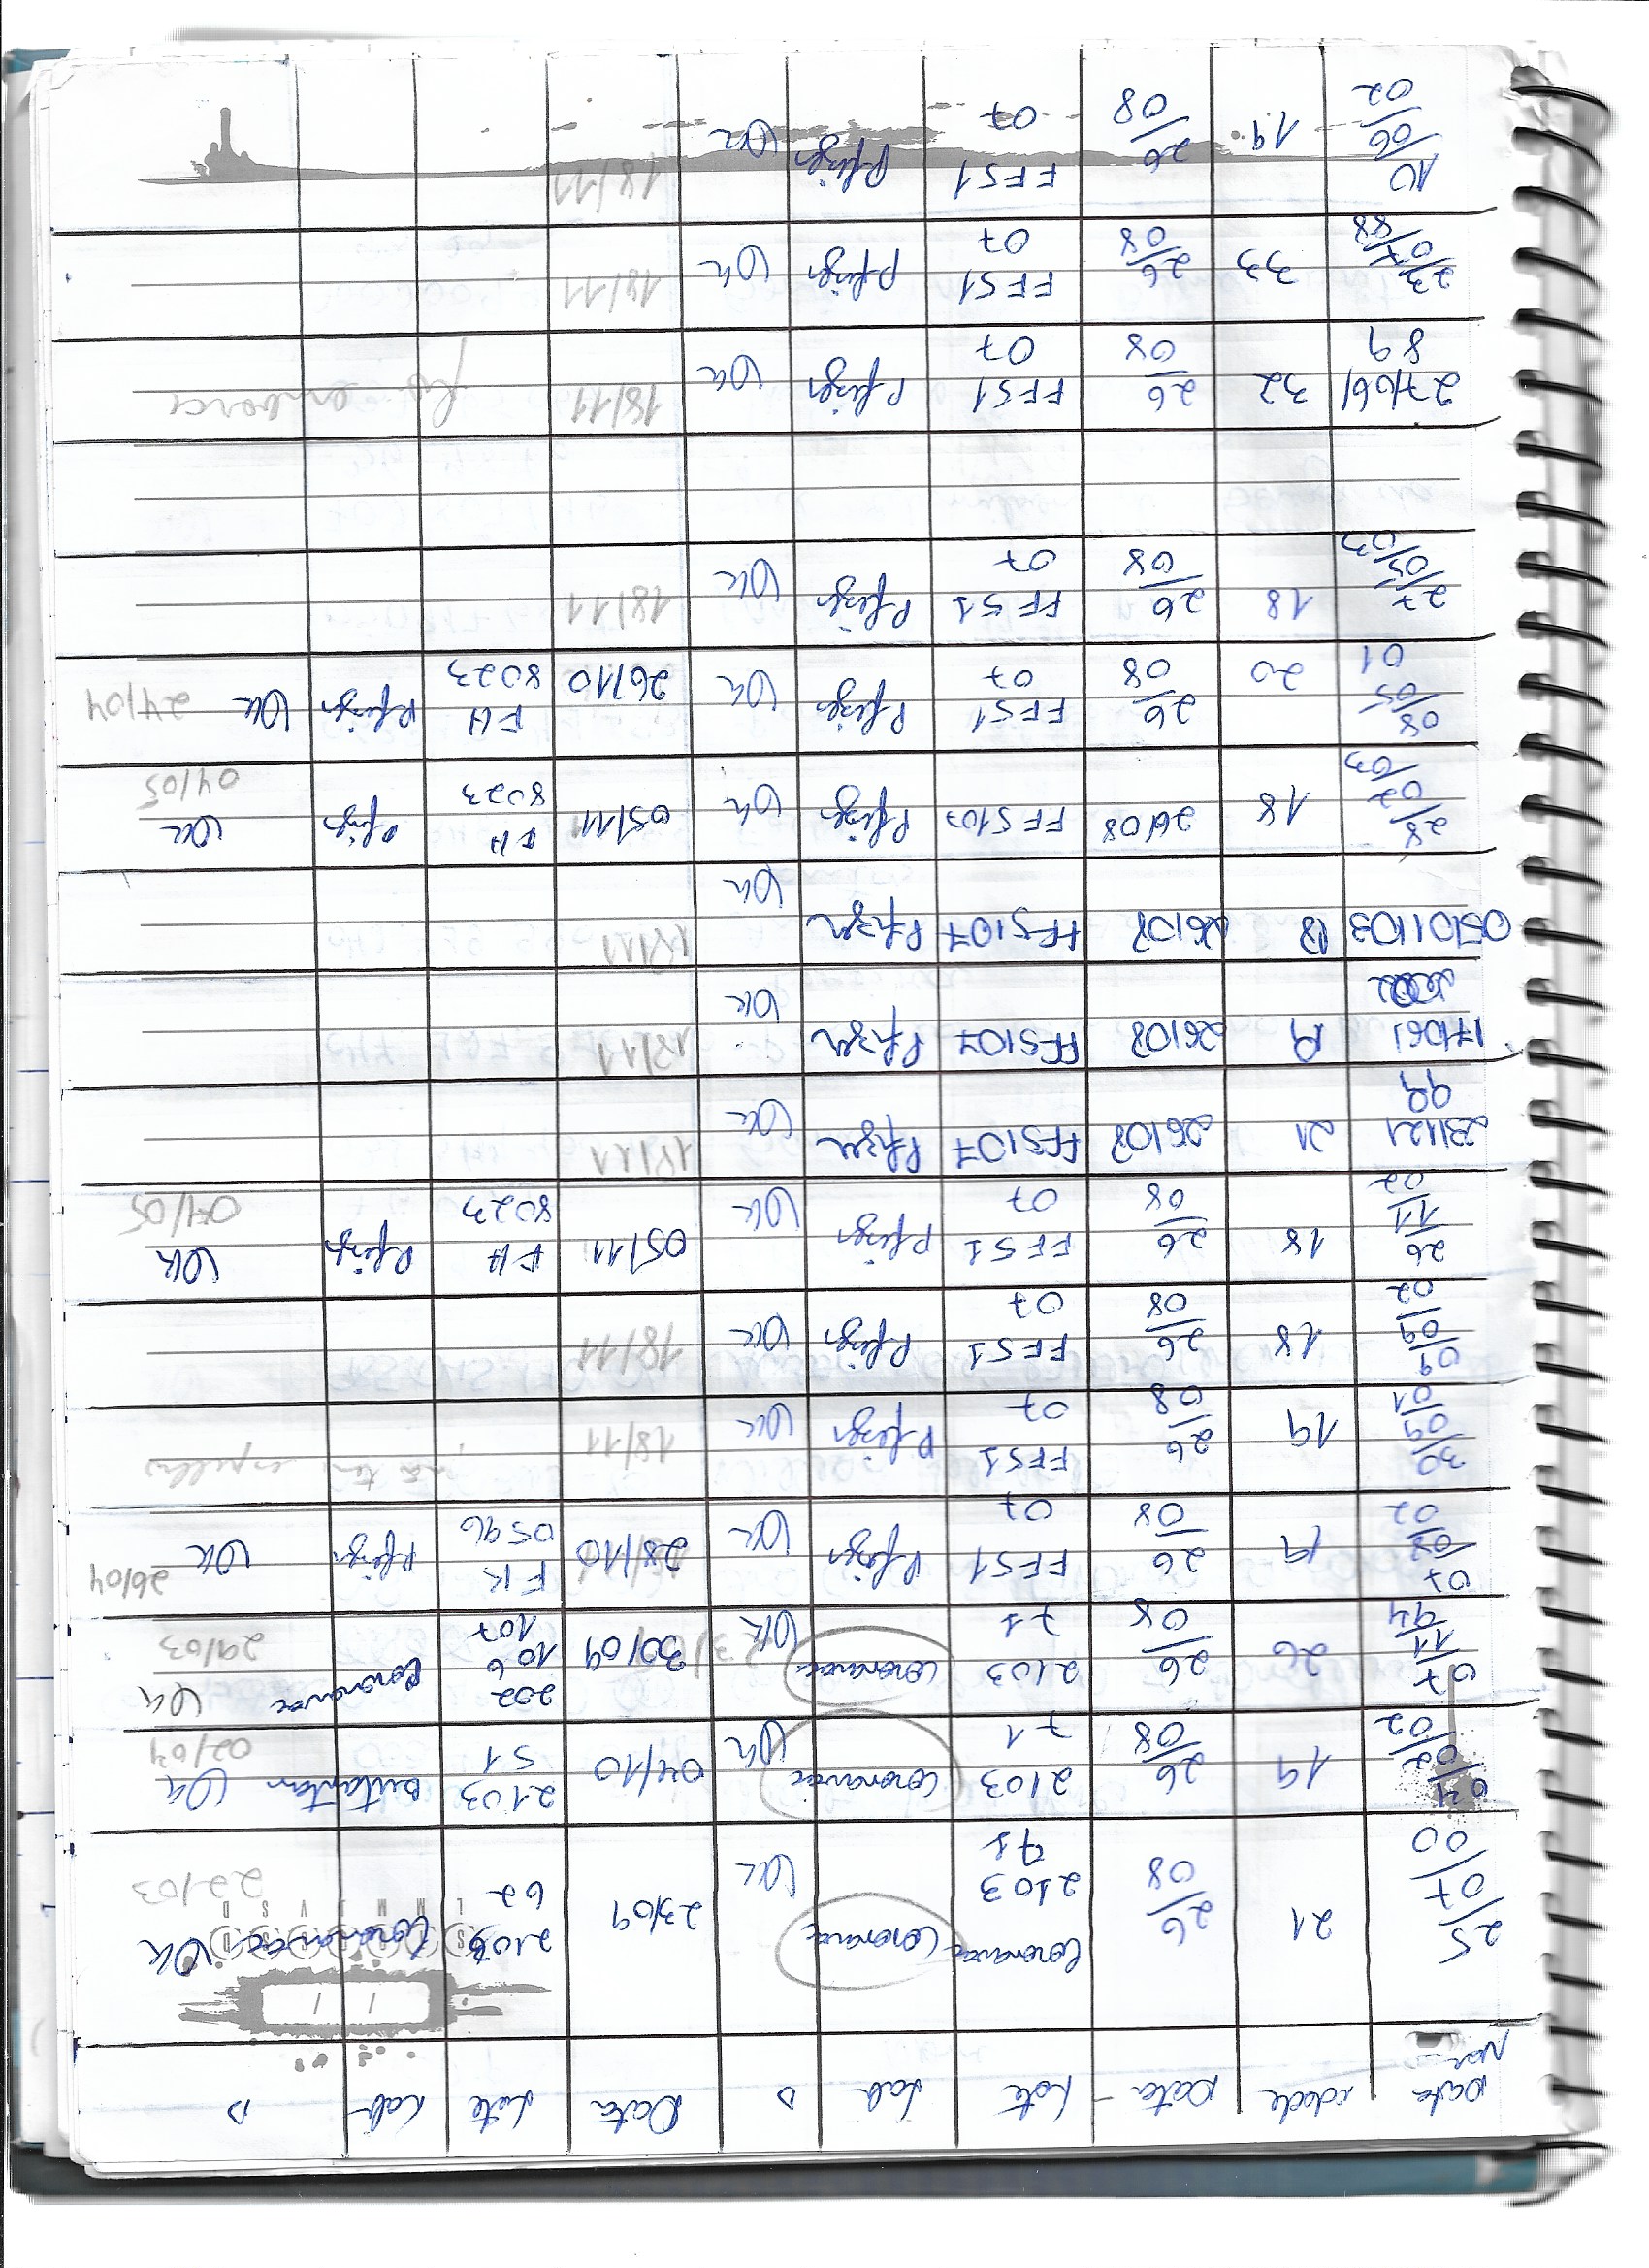 Data Nas idade Data Lote Lab D Data Lote Lab D
25/07/00 21 26/08 Coronavac 2103 71 Coronavac OK 23/09 2103 62 Coronavac OK 22/03
04/02/02 19 26/08 2103 71 Coronavac OK 04/10 2103 51 Butantan OK 02/04
07/11/94 26 26/08 2103 71 Coronavac OK 30/09 202 106 107 Coronavac OK 29/03
07/08/02 19 26/08 FF51 07 Pfizer OK 28/10 FK 0596 Pfizer OK 26/04
30/09/01 19 26/08 FF51 07 Pfizer OK 18/11
09/09/02 18 26/08 FF51 07 Pfizer OK 18/11
26/11/02 18 26/08 FF51 07 Pfizer OK 05/11 FH 8023 Pfizer OK 04/05
23/12/99 21 26/08 FF5107 Pfizer OK 18/11
17/06/2002 19 26/08 FF5107 Pfizer OK 18/11
05/01/03 18 26/08 FF5107 Pfizer OK 18/11
28/02/03 18 26/08 FF5107 Pfizer OK 05/11 FH 8023 Pfizer OK 04/05
08/05/01 20 26/08 FF51 07 Pfizer OK 26/10 FH 8023 Pfizer OK 24/04
27/05/03 18 26/08 FF51 07 Pfizer OK 18/11
27/06/89 32 26/08 FF51 07 Pfizer OK 18/11 embora
23/07/88 33 26/08 FF51 07 Pfizer OK 18/11
10/06/02 19 26/08 FF51 07 Pfizer OK 18/11